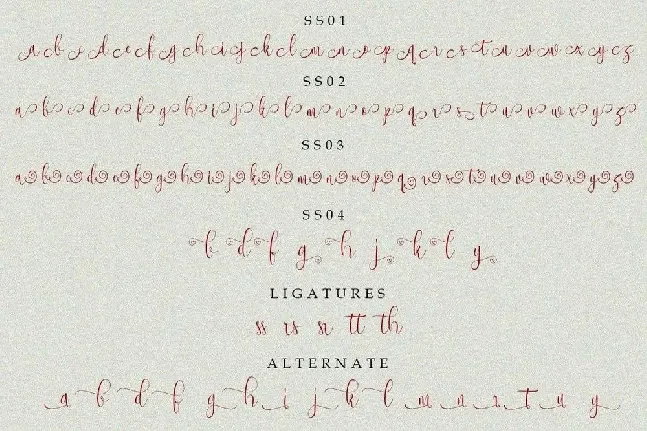 SS01
a b c d e f g h i j k l m n o p q r s t u v w x y z
SS02
a b c d e f g h i j k l m n o p q r s t u v w x y z
SS03
a b c d e f g h i j k l m n o p q r s t u v w x y z
SS04
b d f g h j k l y
LIGATURES
ss rs sr tt th
ALTERNATE
a b d f g h i j k l m n r t u y